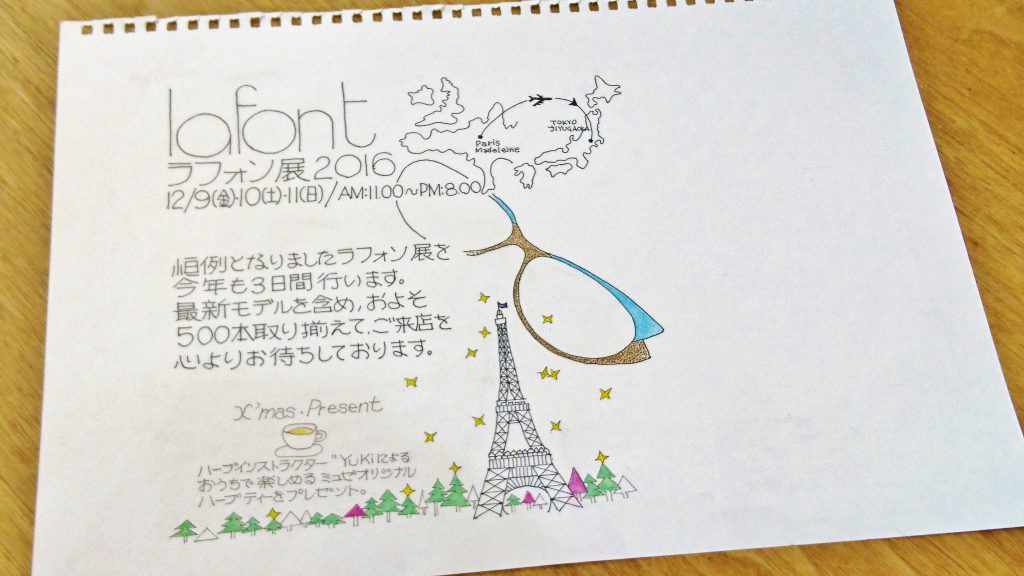 lafont
ラフォン展2016
12/9(金)・10(土)・11(日)/AM:11.00〜PM:8.00
Paris
Madeleine
TOKYO
JIYUGAOKA
恒例となりましたラフォン展を
今年も3日間行います。
最新モデルを含め,およそ
500本取り揃えて、ご来店を
心よりお待ちしております。
X'mas・Present
ハーブインストラクター "YUKiによる
おうちで楽しめるミュゼオリジナル
ハーブティーをプレゼント。